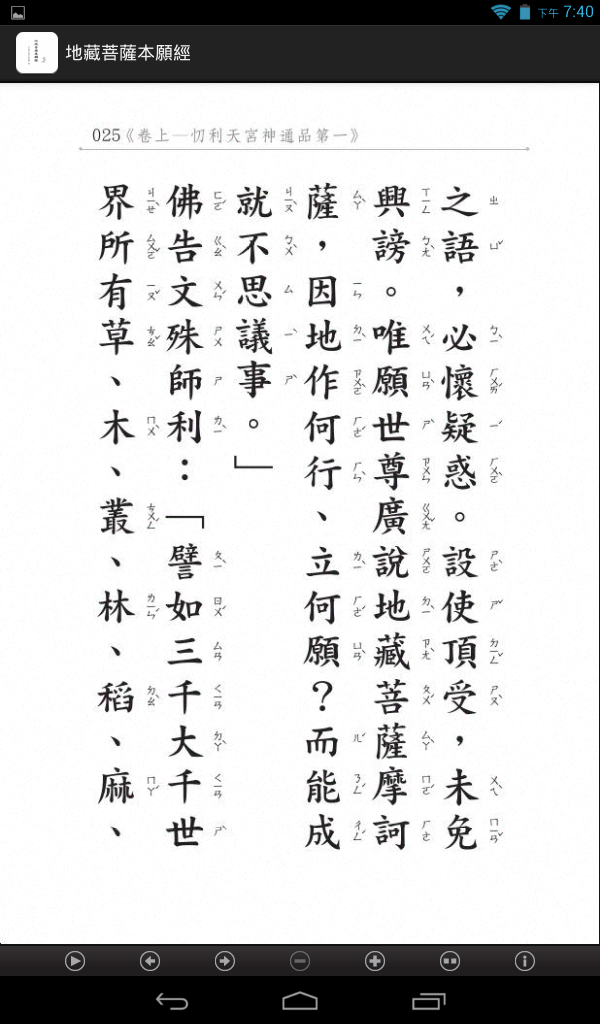 下午 7:40
地藏菩薩本願經
025《卷上─忉利天宮神通品第一》
之語，必懷疑惑。設使頂受，未免
興謗。唯願世尊廣說地藏菩薩摩訶
薩，因地作何行、立何願？而能成
就不思議事。」
佛告文殊師利：「譬如三千大千世
界所有草、木、叢、林、稻、麻、